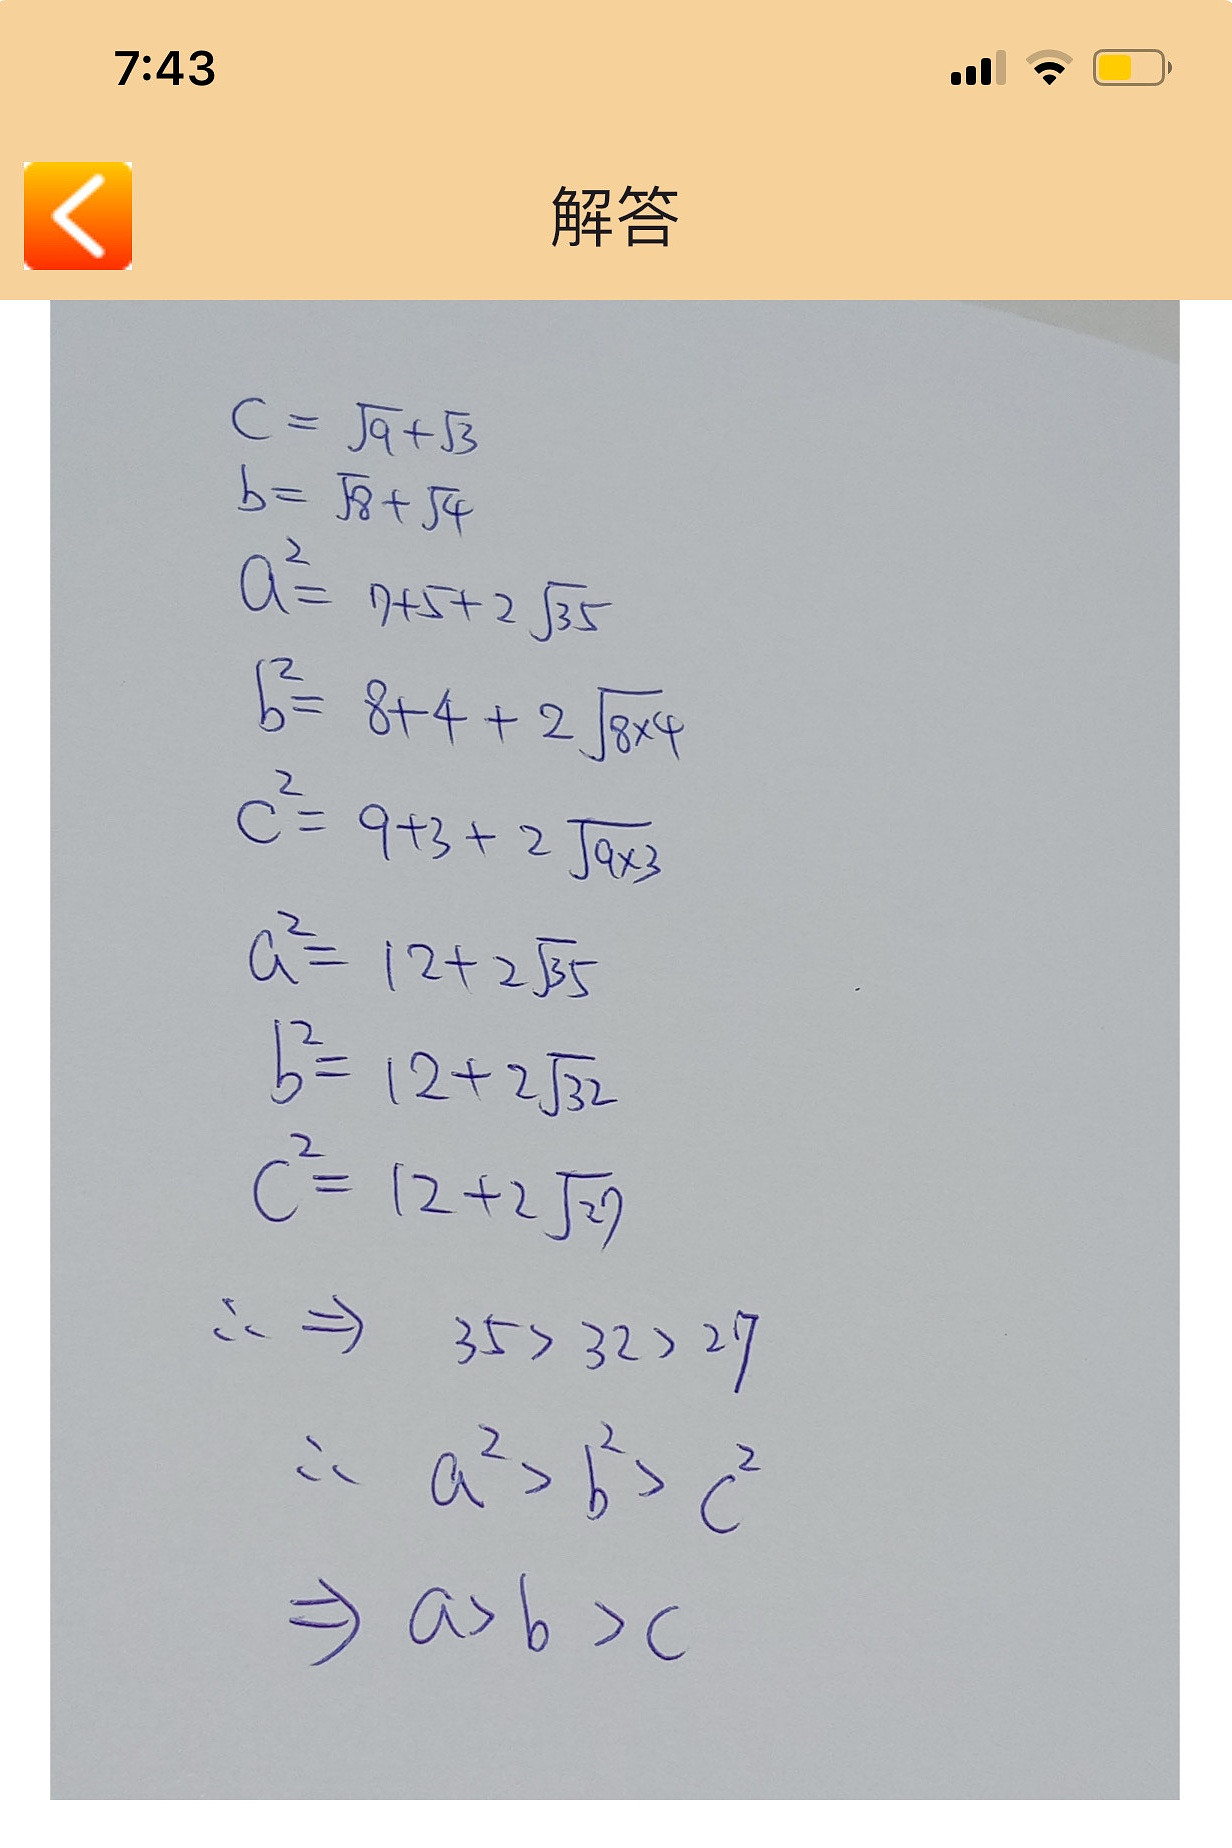 7:43
解答
C = √9+√3
b = √8 + √4
a² = 7+5+2√35
b² = 8+4+2√8×4
c² = 9+3+2√9×3
a² = 12+2√35
b² = 12+2√32
c² = 12+2√27
∴ ⇒ 35>32>27
∴ a²>b²>c²
⇒ a>b>c